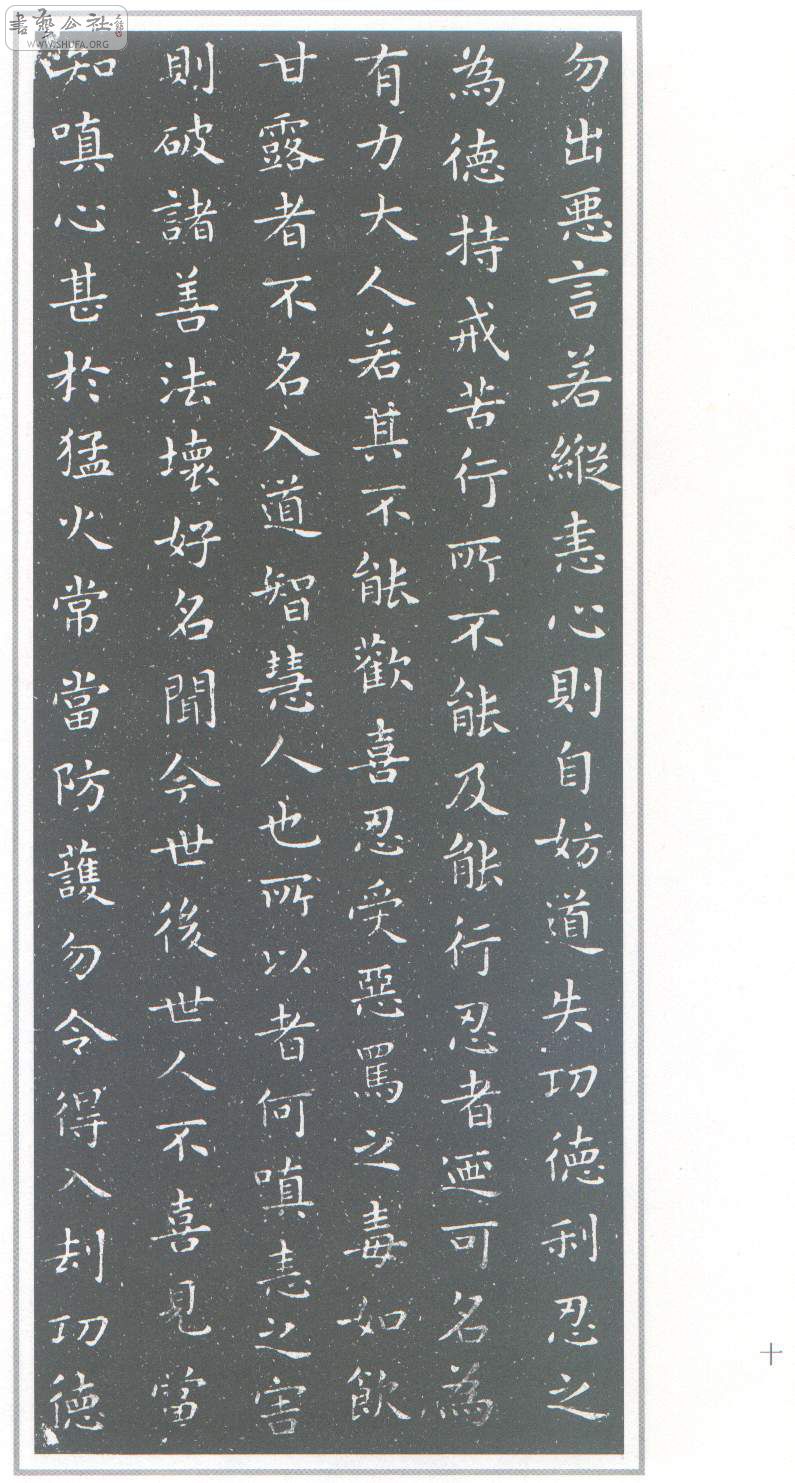 勿出惡言若縱恚心則自妨道失功德利忍之
為德持戒苦行所不能及能行忍者迺可名為
有力大人若其不能歡喜忍受惡罵之毒如飲
甘露者不名入道智慧人也所以者何嗔恚之害
則破諸善法壞好名聞今世後世人不喜見當
知嗔心甚於猛火常當防護勿令得入刦功德
十
書藝公社
WWW.SHUFA.ORG